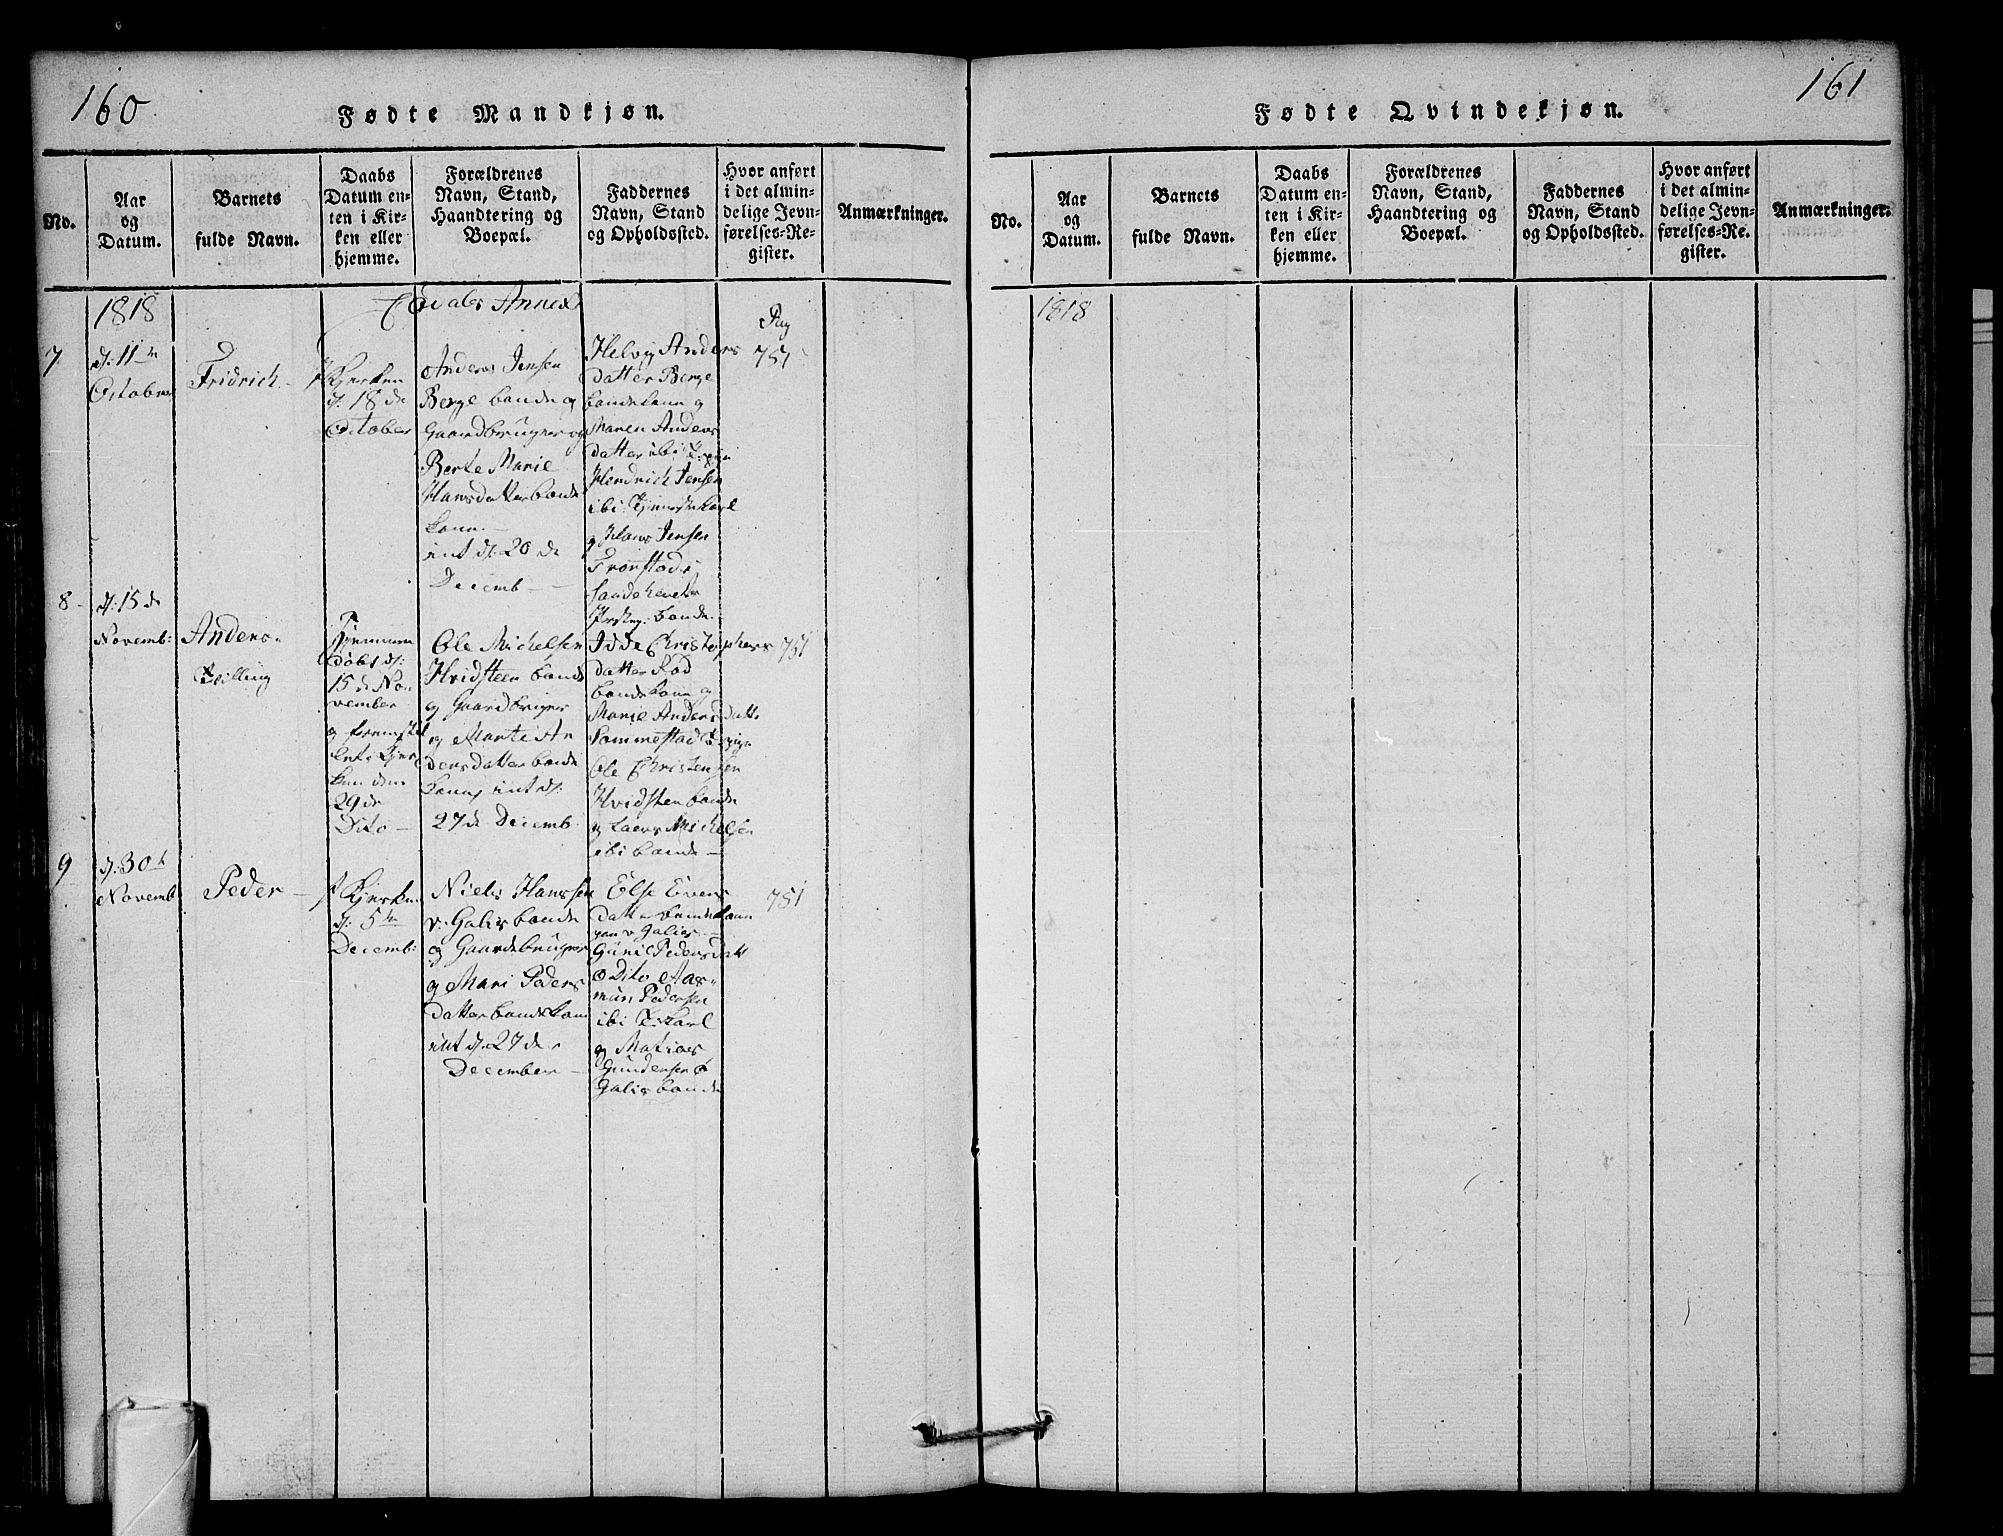 160
Fødte Mandkjøn.
No.
Aar
og
Datum.
Barnets
fulde Navn.
Daabs
Datum en-
ten i Kir-
ken eller
hjemme.
Forældrenes
Navn, Stand,
Haandtering og
Boepæl.
Faddernes
Navn, Stand
og Opholdssted.
Hvor anført
i det almin-
delige Jevn-
førelses-Re-
gister.
Anmærkninger.
Annex
1818
Pag
7
d: 11te
October
Fridrich
Kjerken
d: 18 de
October
Anders Jensen
Berge bonde og
Gaardbruger og
Berte Marie
Hansdatter bonde
kone
int d: 20 de
Decemb
Helvig Anders
datter Berge
bondekone og
Maren Anders
datter ibi
Hendrich Jensen
ibi
og Hans Jensen
bonde
751
8
d: 15 de
Novemb:
Anders
Tvilling
Hjemme
døbt d:
15 de No
vember
og
ken den
29 de
Dito
Ole Michelsen
Hvidsteen bonde
og Gaardbruger
og Marte An
dersdatter bonde
kone int d:
27 de Decemb
Christophers
datter Rød
bondekone og
Marie Andersdatt
Sommestad
Ole Christensen
Hvidsten bonde
og Laers Michelsen
ibi bonde
751
9
d: 30te
Novemb
Peder
Kjerken
d: 5te
Decemb:
Niels Hanssen
v: Galis bonde
og Gaardbruger
og Mari Peders
datter bondekone
int d: 27 de
December
Else Evens
datter bondekone
v Galis
Gunil Pedersdatt
Dito Aas-
mun Pedersen
ibi karl
og Matias
Gundersen
Galis bonde
751
161
Fødte Qvindekjøn.
No.
Aar
og
Datum.
Barnets
fulde Navn.
Daabs
Datum en-
ten i Kir-
ken eller
hjemme.
Forældrenes
Navn, Stand,
Haandtering og
Boepæl.
Faddernes
Navn, Stand
og Opholdssted.
Hvor anført
i det almin-
delige Jevn-
førelses-Re-
gister.
Anmærkninger.
1818